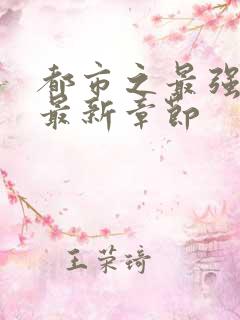 都市之最强
最新章节
王荣琦